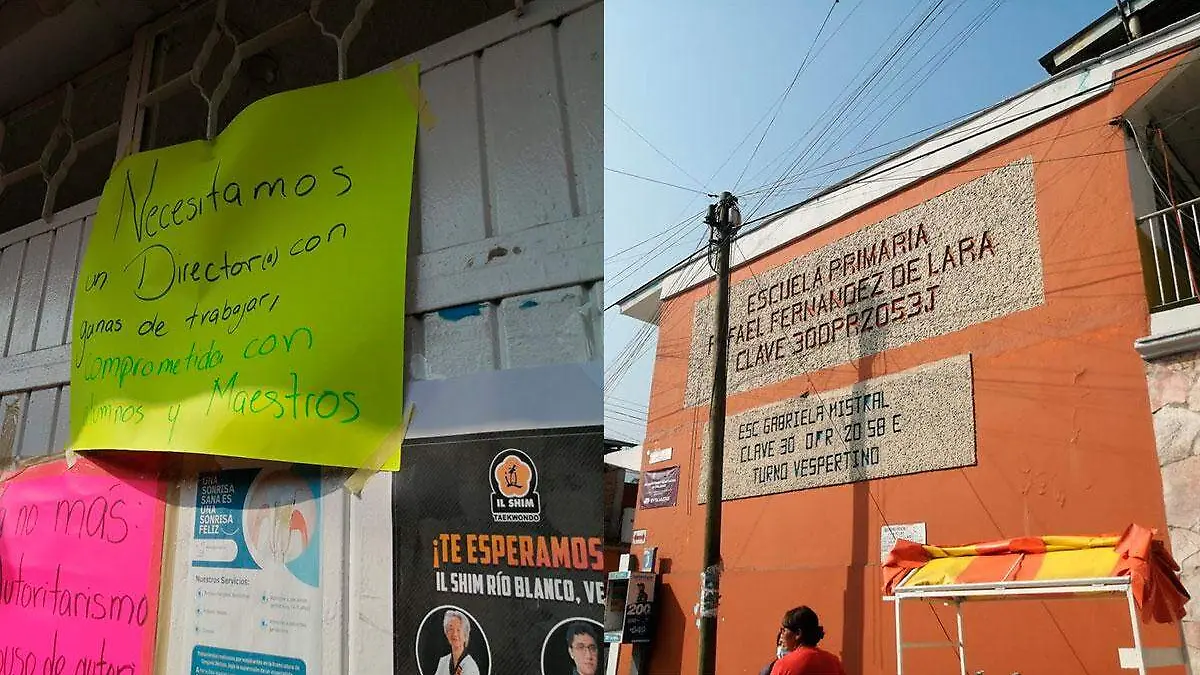 Necesitamos
un Director(a) con
ganas de trabajar,
Comprometida con
alumnos y Maestros
no más:
autoritarismo
UNA
SONRISA
SANA ES
UNA
SONRISA
FELIZ
Nuestros Servicios:
IL SHIM
TAEKWONDO
¡TE ESPERAMOS
IL SHIM RÍO BLANCO, VE
ESCUELA PRIMARIA
RAFAEL FERNANDEZ DE LARA
CLAVE 30DPR2053J
ESC GABRIELA MISTRAL
CLAVE 30 DPR 2058 E
TURNO VESPERTINO
200